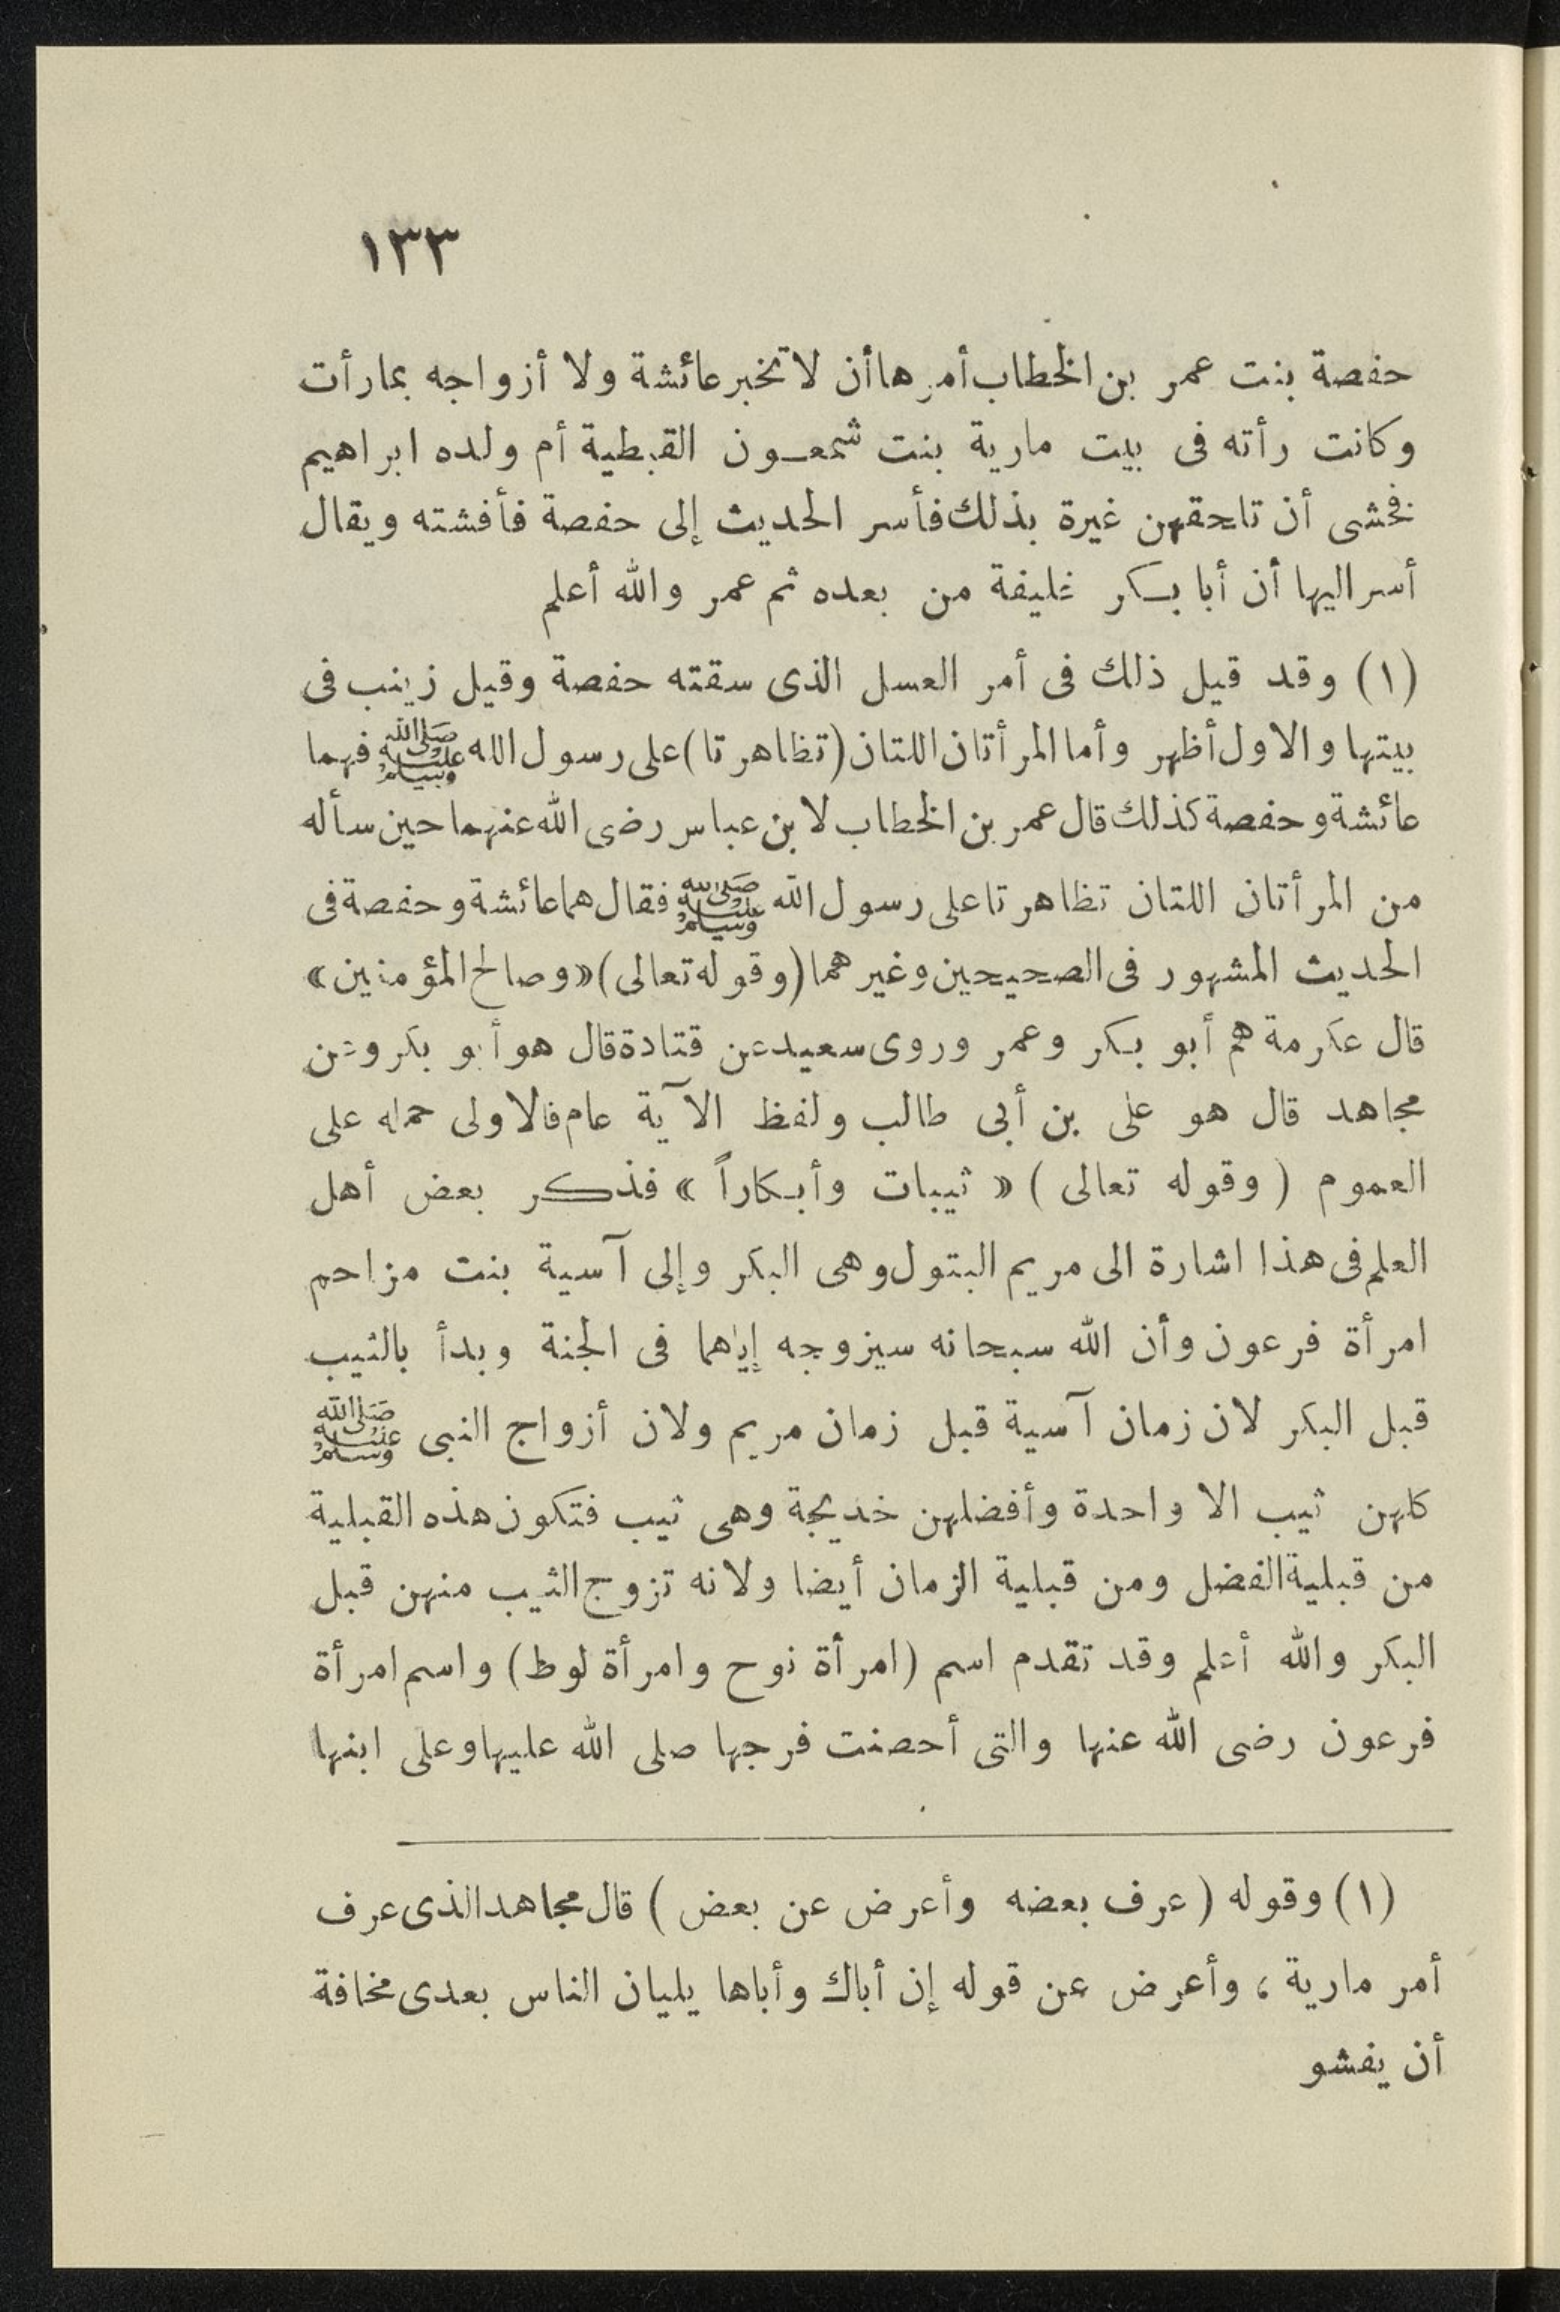 ١٣٣
حفصة بنت عمر بن الخطاب أمرها أن لا تخبر عائشة ولا أزواجه بما رأت
وكانت رأته فى بيت مارية بنت شمعون القبطية أم ولده ابراهيم
فخشى أن تاحقهن غيرة بذلك فأسر الحديث إلى حفصة فأفشته ويقال
أسر اليها أن أبا بكر خليفة من بعده ثم عمر والله أعلم
(١) وقد قيل ذلك فى أمر العسل الذى سقته حفصة وقيل زينب فى
بيتها والاول أظهر وأما المرأتان اللتان (تظاهرتا) على رسول الله ﷺ فهما
عائشة وحفصة كذلك قال عمر بن الخطاب لابن عباس رضى الله عنهما حين سأله
من المرأتان اللتان تظاهرتا على رسول الله ﷺ فقال هما عائشة وحفصة فى
الحديث المشهور فى الصحيحين وغيرهما (وقوله تعالى) «وصالح المؤمنين»
قال عكرمة هم أبو بكر وعمر وروى سعيد عن قتادة قال هو أبو بكر وعن
مجاهد قال هو على بن أبى طالب ولفظ الآية عام فالاولى حمله على
العموم (وقوله تعالى) «ثيبات وأبكاراً» فذكر بعض أهل
العلم فى هذا اشارة الى مريم البتول وهى البكر وإلى آسية بنت مزاحم
امرأة فرعون وأن الله سبحانه سيزوجه إياهما فى الجنة وبدأ بالثيب
قبل البكر لان زمان آسية قبل زمان مريم ولان أزواج النبى ﷺ
كلهن ثيب الا واحدة وأفضلهن خديجة وهى ثيب فتكون هذه القبلية
من قبلية الفضل ومن قبلية الزمان أيضا ولانه تزوج الثيب منهن قبل
البكر والله أعلم وقد تقدم اسم (امرأة نوح وامرأة لوط) واسم امرأة
فرعون رضى الله عنها والتى أحصنت فرجها صلى الله عليها وعلى ابنها
(١) وقوله (عرف بعضه وأعرض عن بعض) قال مجاهد الذى عرف
أمر مارية، وأعرض عن قوله إن أباك وأباها يليان الناس بعدى مخافة
أن يفشو